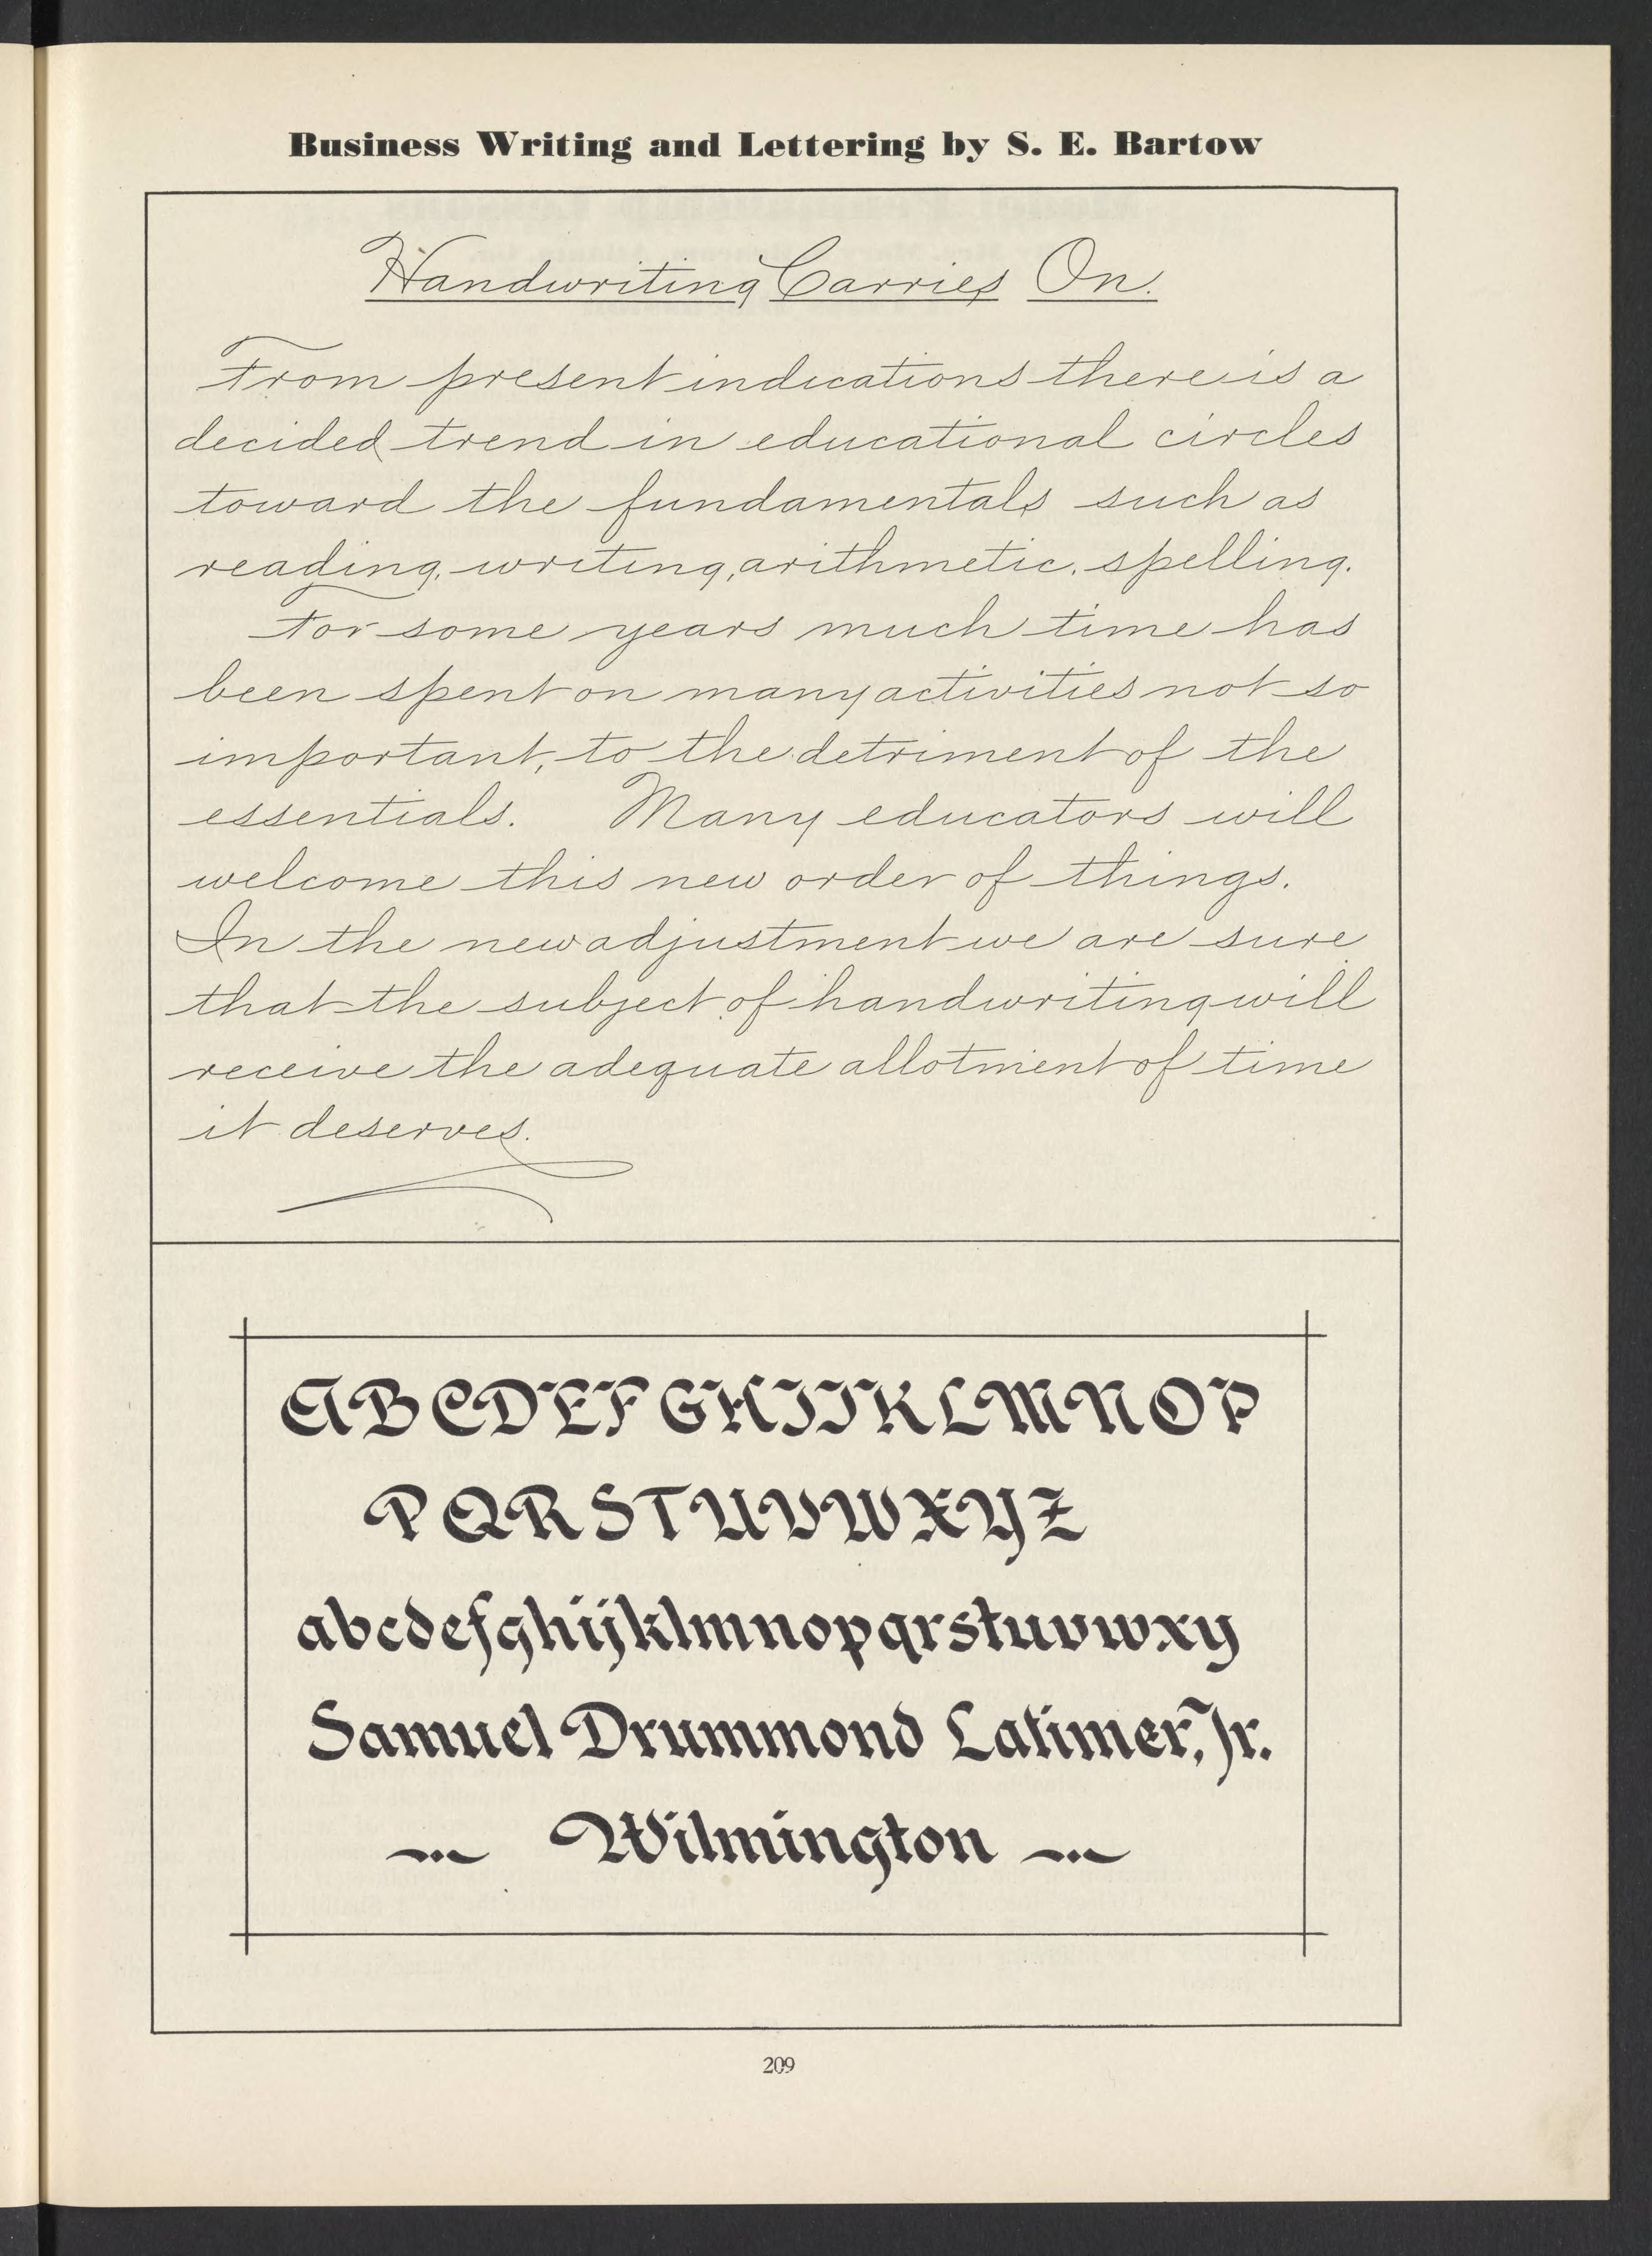 Business Writing and Lettering by S. E. Bartow
Handwriting Carries On.
From present indications there is a
decided trend in educational circles
toward the fundamentals such as
reading, writing, arithmetic, spelling.
For some years much time has
been spent on many activities not so
important, to the detriment of the
essentials. Many educators will
welcome this new order of things.
In the new adjustment we are sure
that the subject of handwriting will
receive the adequate allotment of time
it deserves.
A B C D E F G H I J K L M N O P
P Q R S T U V W X Y Z
abcdefghijklmnopqrstuvwxy
Samuel Drummond Latimer, Jr.
Wilmington
209